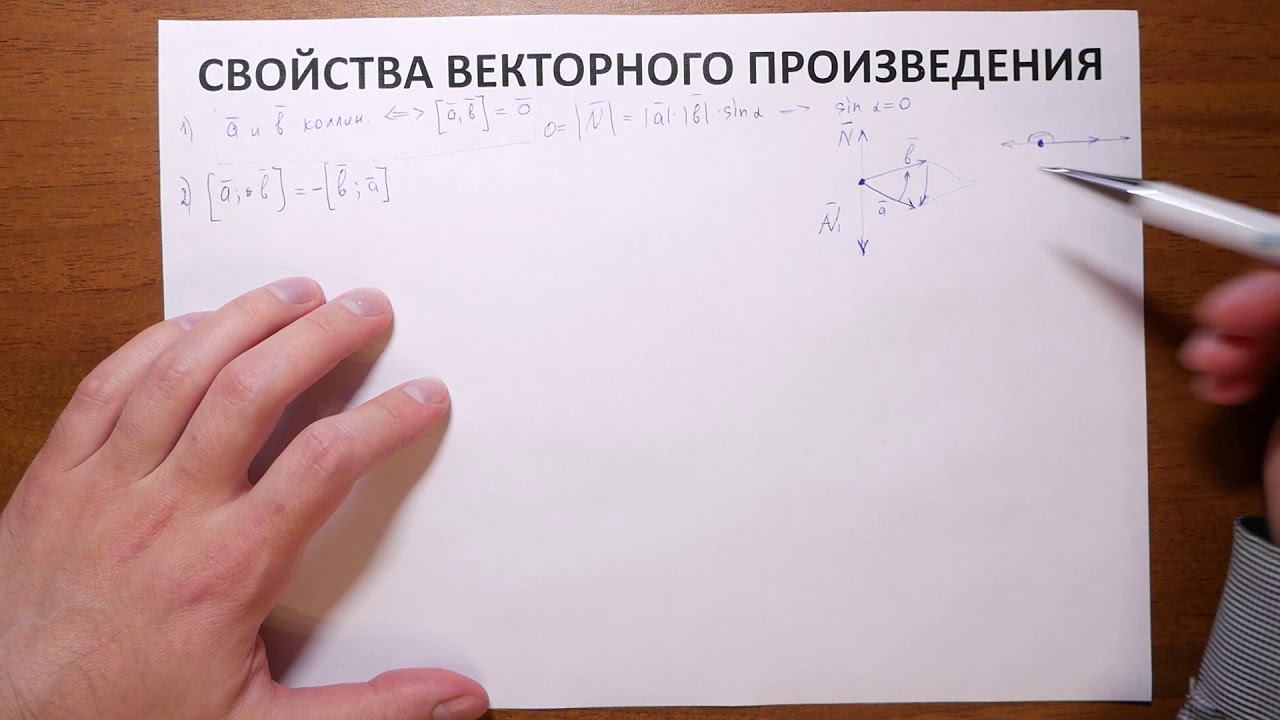 СВОЙСТВА ВЕКТОРНОГО ПРОИЗВЕДЕНИЯ
1) a̅ и b̅ коллин. <=> [a̅, b̅] = 0̅ 0 = |N̅| = |a̅|·|b̅|·sin α → sin α = 0
N̅
b̅
2) [a̅; b̅] = -[b̅; a̅]
a̅
N̅₁